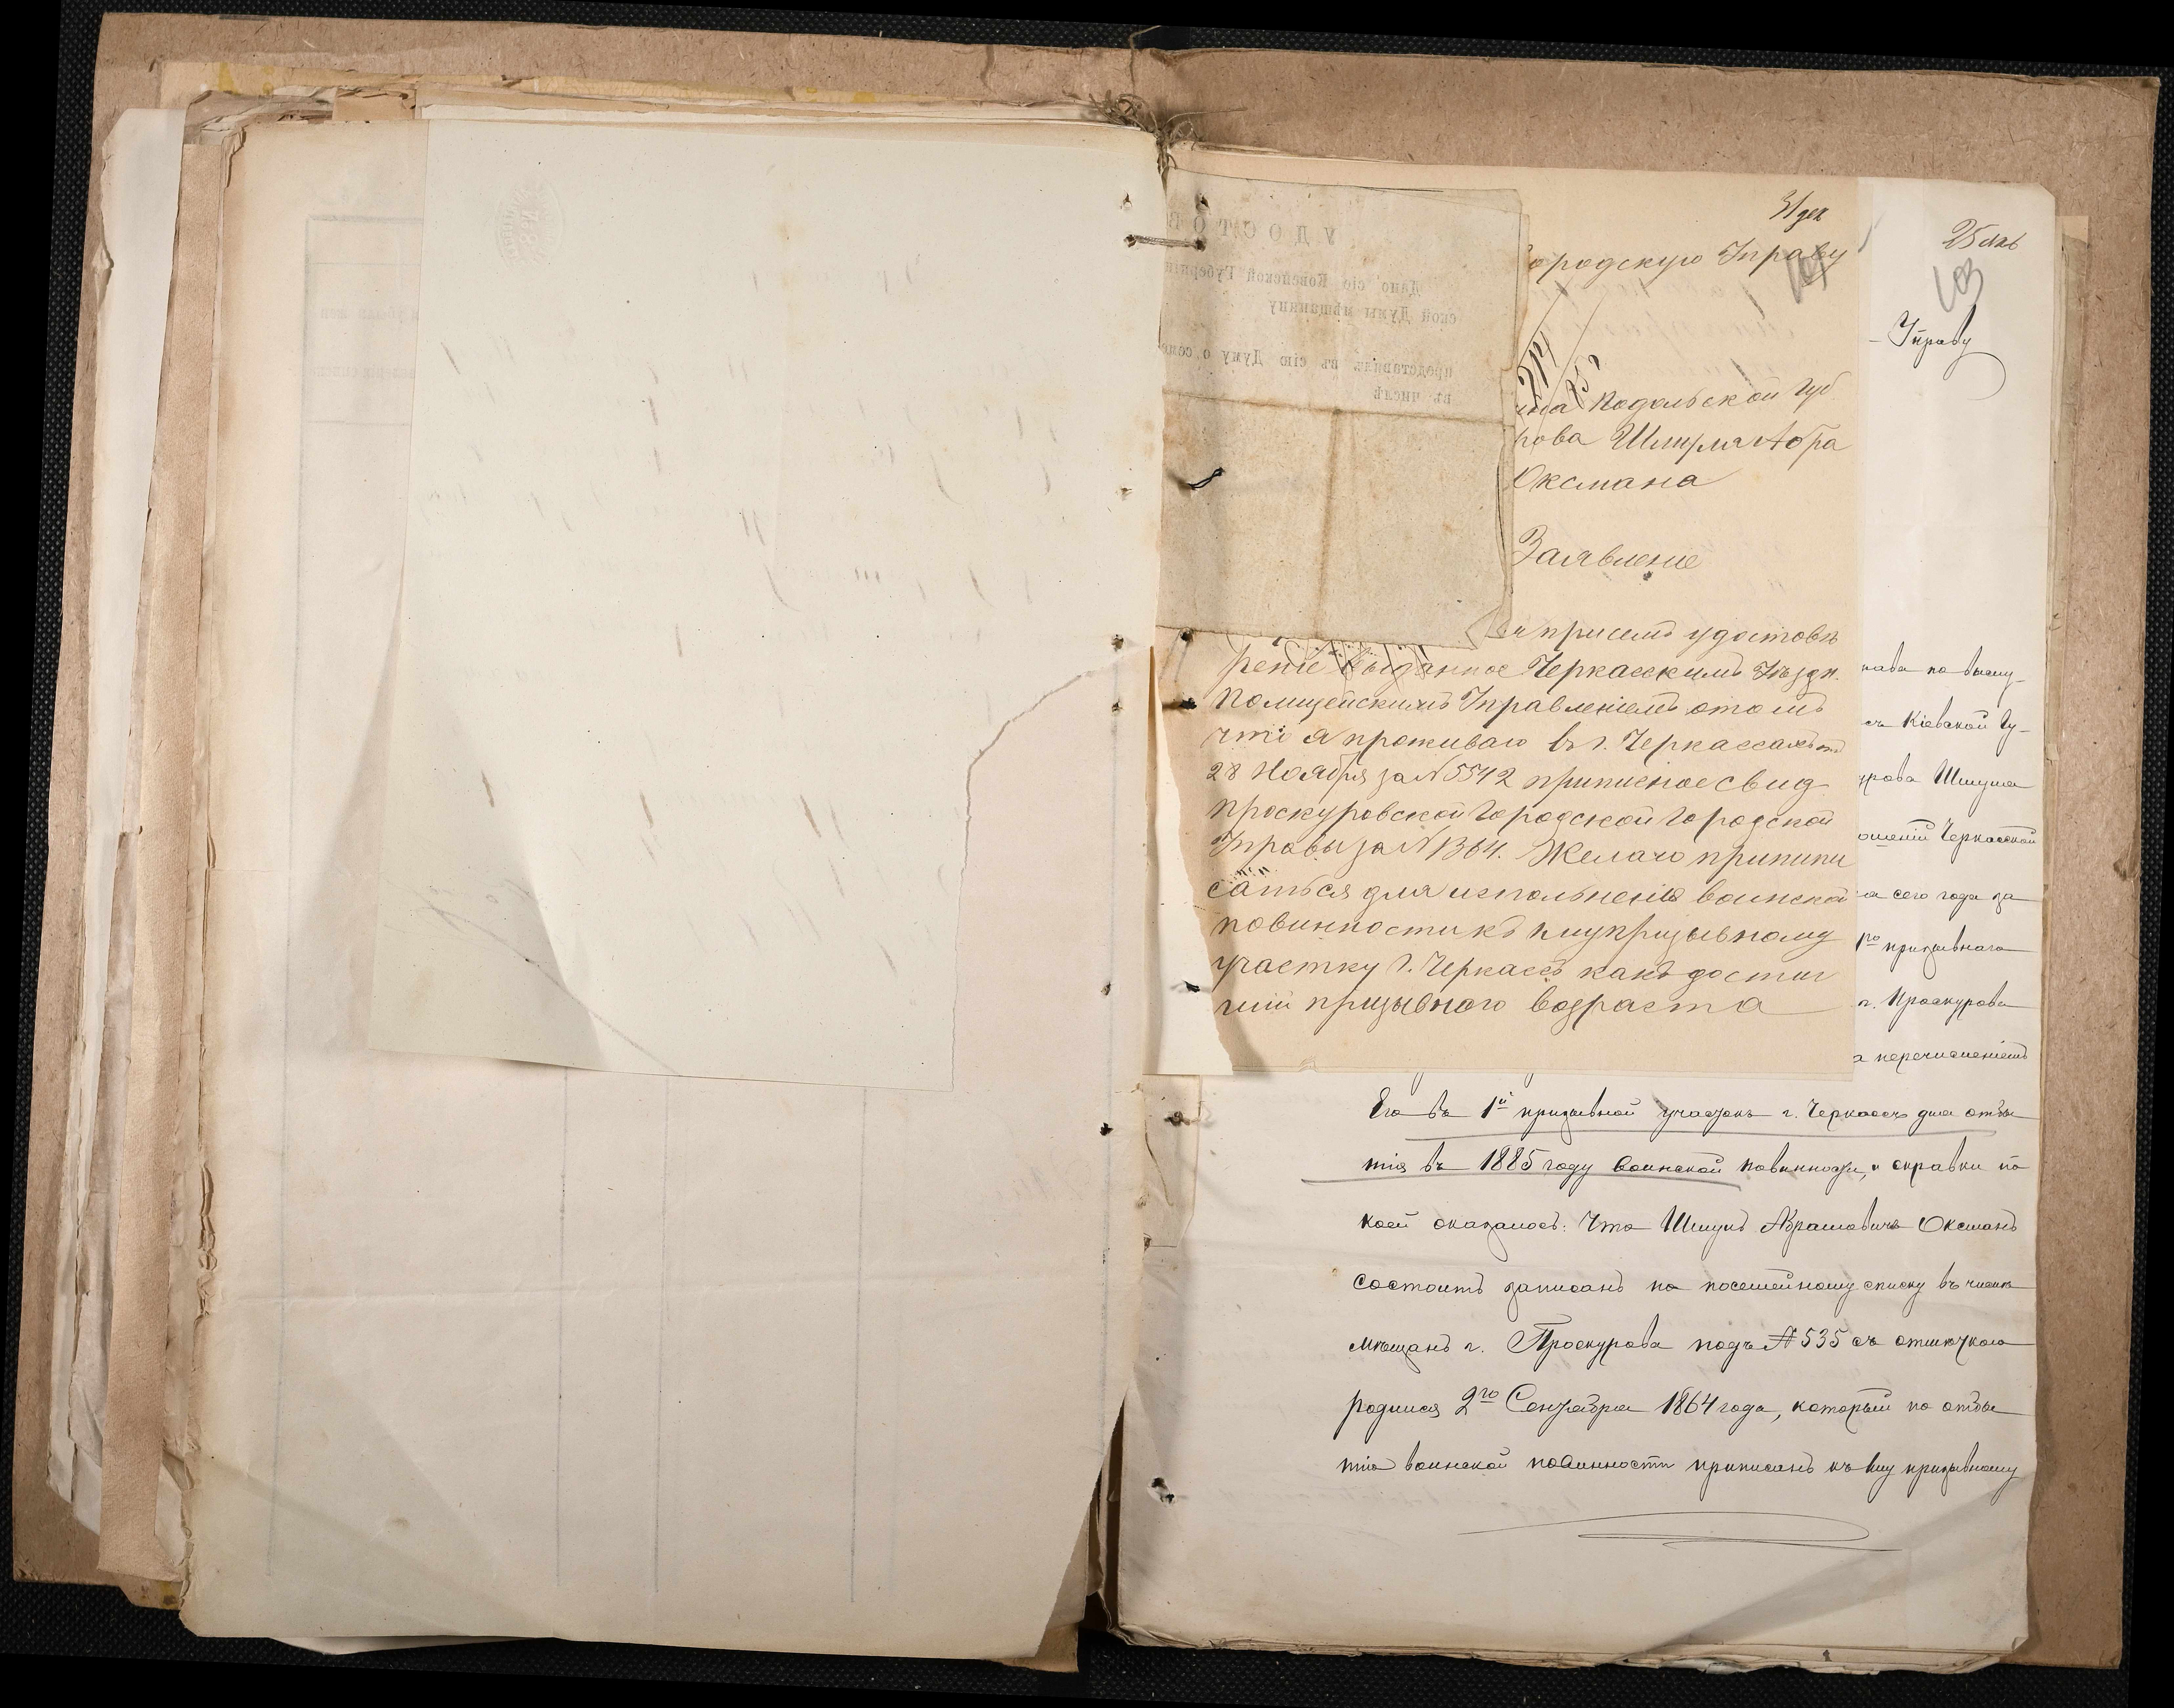 31 дек
ородскую Управу
Подольской Губ
рова Шмуля Абра
Оксмана
Заявление
при семъ удостовѣ
реніе выданное Черкасскимъ Уѣздн.
Полицейскимъ Управленіемъ отомъ
что я проживаю въ г. Черкассахъ отъ
28 Ноября за N 5542 приписное свид
Проскуровской Городской Городской
Управы за N 1364. Желаю припи
саться для исполненія воинской
повинности къ 1му призывному
участку г. Черкассъ какъ достиг
шій призывного возраста
УДОСТОВ
Дано сіе Ковенской Губерніи
ской Думы мѣщанину
представилъ въ сію Думу о семе
въ числѣ
103
Управу
рава по выслу-
съ Кіевской Гу-
урова Шмуля
ошеній Черкасской
а сего года за
1го призывнаго
г. Проскурова
а перечисленіемъ
Его въ 1й призывной участокъ г. Черкассъ для отбы
тія въ 1885 году воинской повинности, и справки по
коей оказалось: Что Шмуль Абрамовичъ Оксманъ
состоитъ записанъ по посемейному списку въ числѣ
мѣщанъ г. Проскурова подъ N 535 съ отмѣткою
родился 2го Сентября 1864 года, который по отбы
тію воинской повинности приписанъ къ 1му призывному